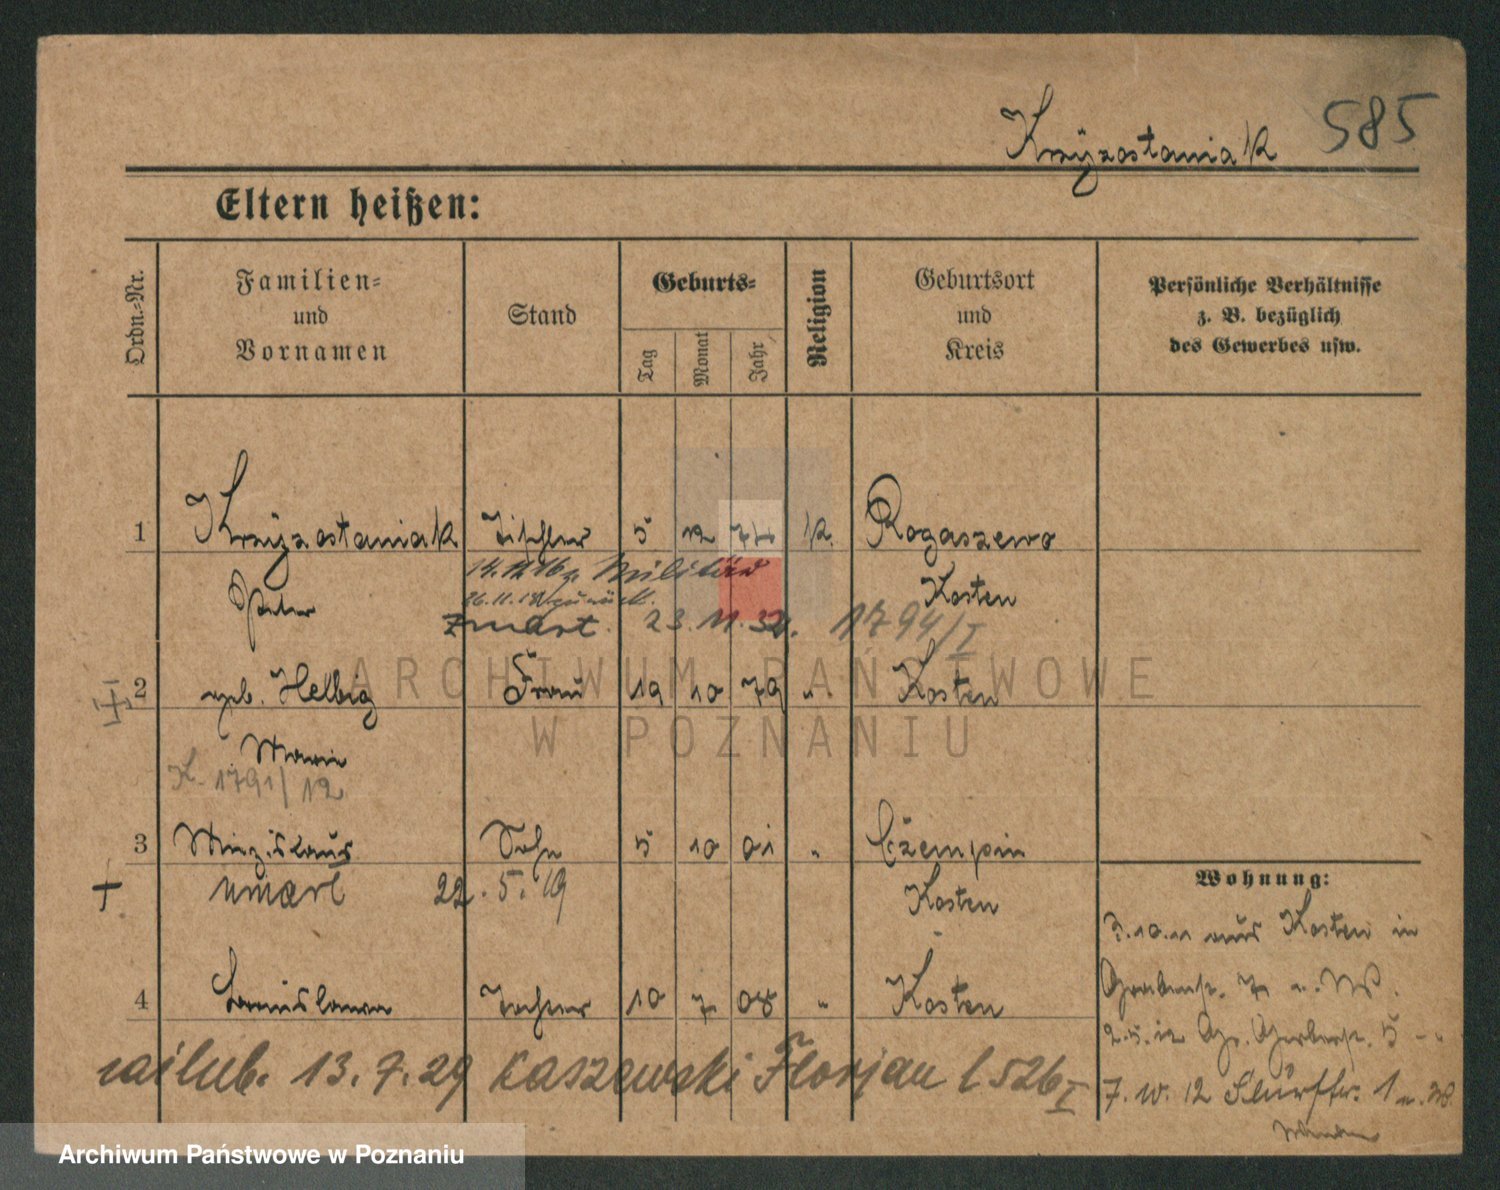 Krzyzostaniak 585
Eltern heißen:
Ordn.-Nr.
Familien-
und
Vornamen
Stand
Geburts-
Tag
Monat
Jahr
Religion
Geburtsort
und
Kreis
Persönliche Verhältnisse
z. B. bezüglich
des Gewerbes usw.
1 Krzyzostaniak Tischler 5 12 74 k. Rogaszewo
14.12.16 z. Militär
Peter Kosten
26.11.18 zurück.
zmarł. 23.11.32. 1794/I
2 geb. Helbig Frau 19 10 79 „ Kosten
Marie
K. 1791/12
3 Miezislaus Sohn 5 10 01 „ Czempin
umarł 22.5.19 Kosten
4 Stanislawa Tochter 10 7 08 „ Kosten
zaślub. 13.7.29 Kaszewski Florjan l 526 I
Wohnung:
3.10.11 aus Kosten in
7
2.5.12 Gr. Gerberstr. 5
7. 12 1
ARCHIWUM PAŃSTWOWE
W POZNANIU
Archiwum Państwowe w Poznaniu